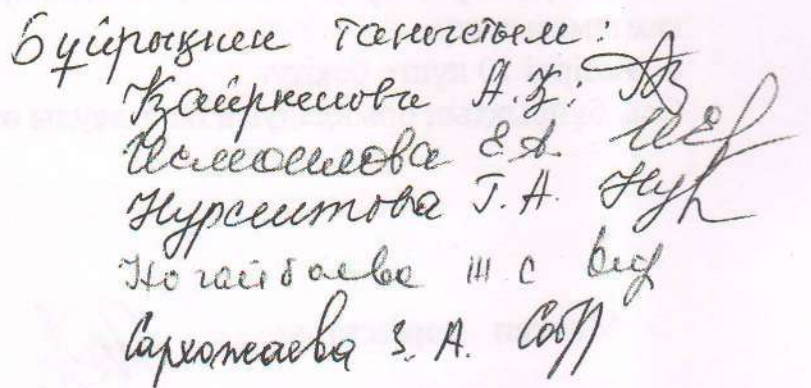 Бұйрықпен таныстым:
Қайркенова А.Қ:
Исмаилова Е.А.
Нурсеитова Г.А.
Ногайбаева Ш С
Сархожаева З.А.